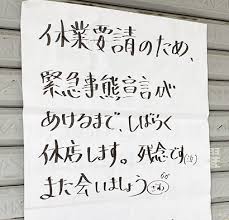 休業要請のため、
緊急事熊宣言が
あけるまで、しばらく
休店します。残念です(泣)
また会いましょう